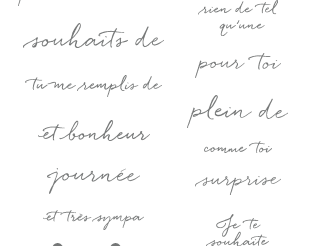 souhaits de
tu me remplis de
et bonheur
journée
et très sympa
rien de tel
qu'une
pour toi
plein de
comme toi
surprise
Je te
souhaite